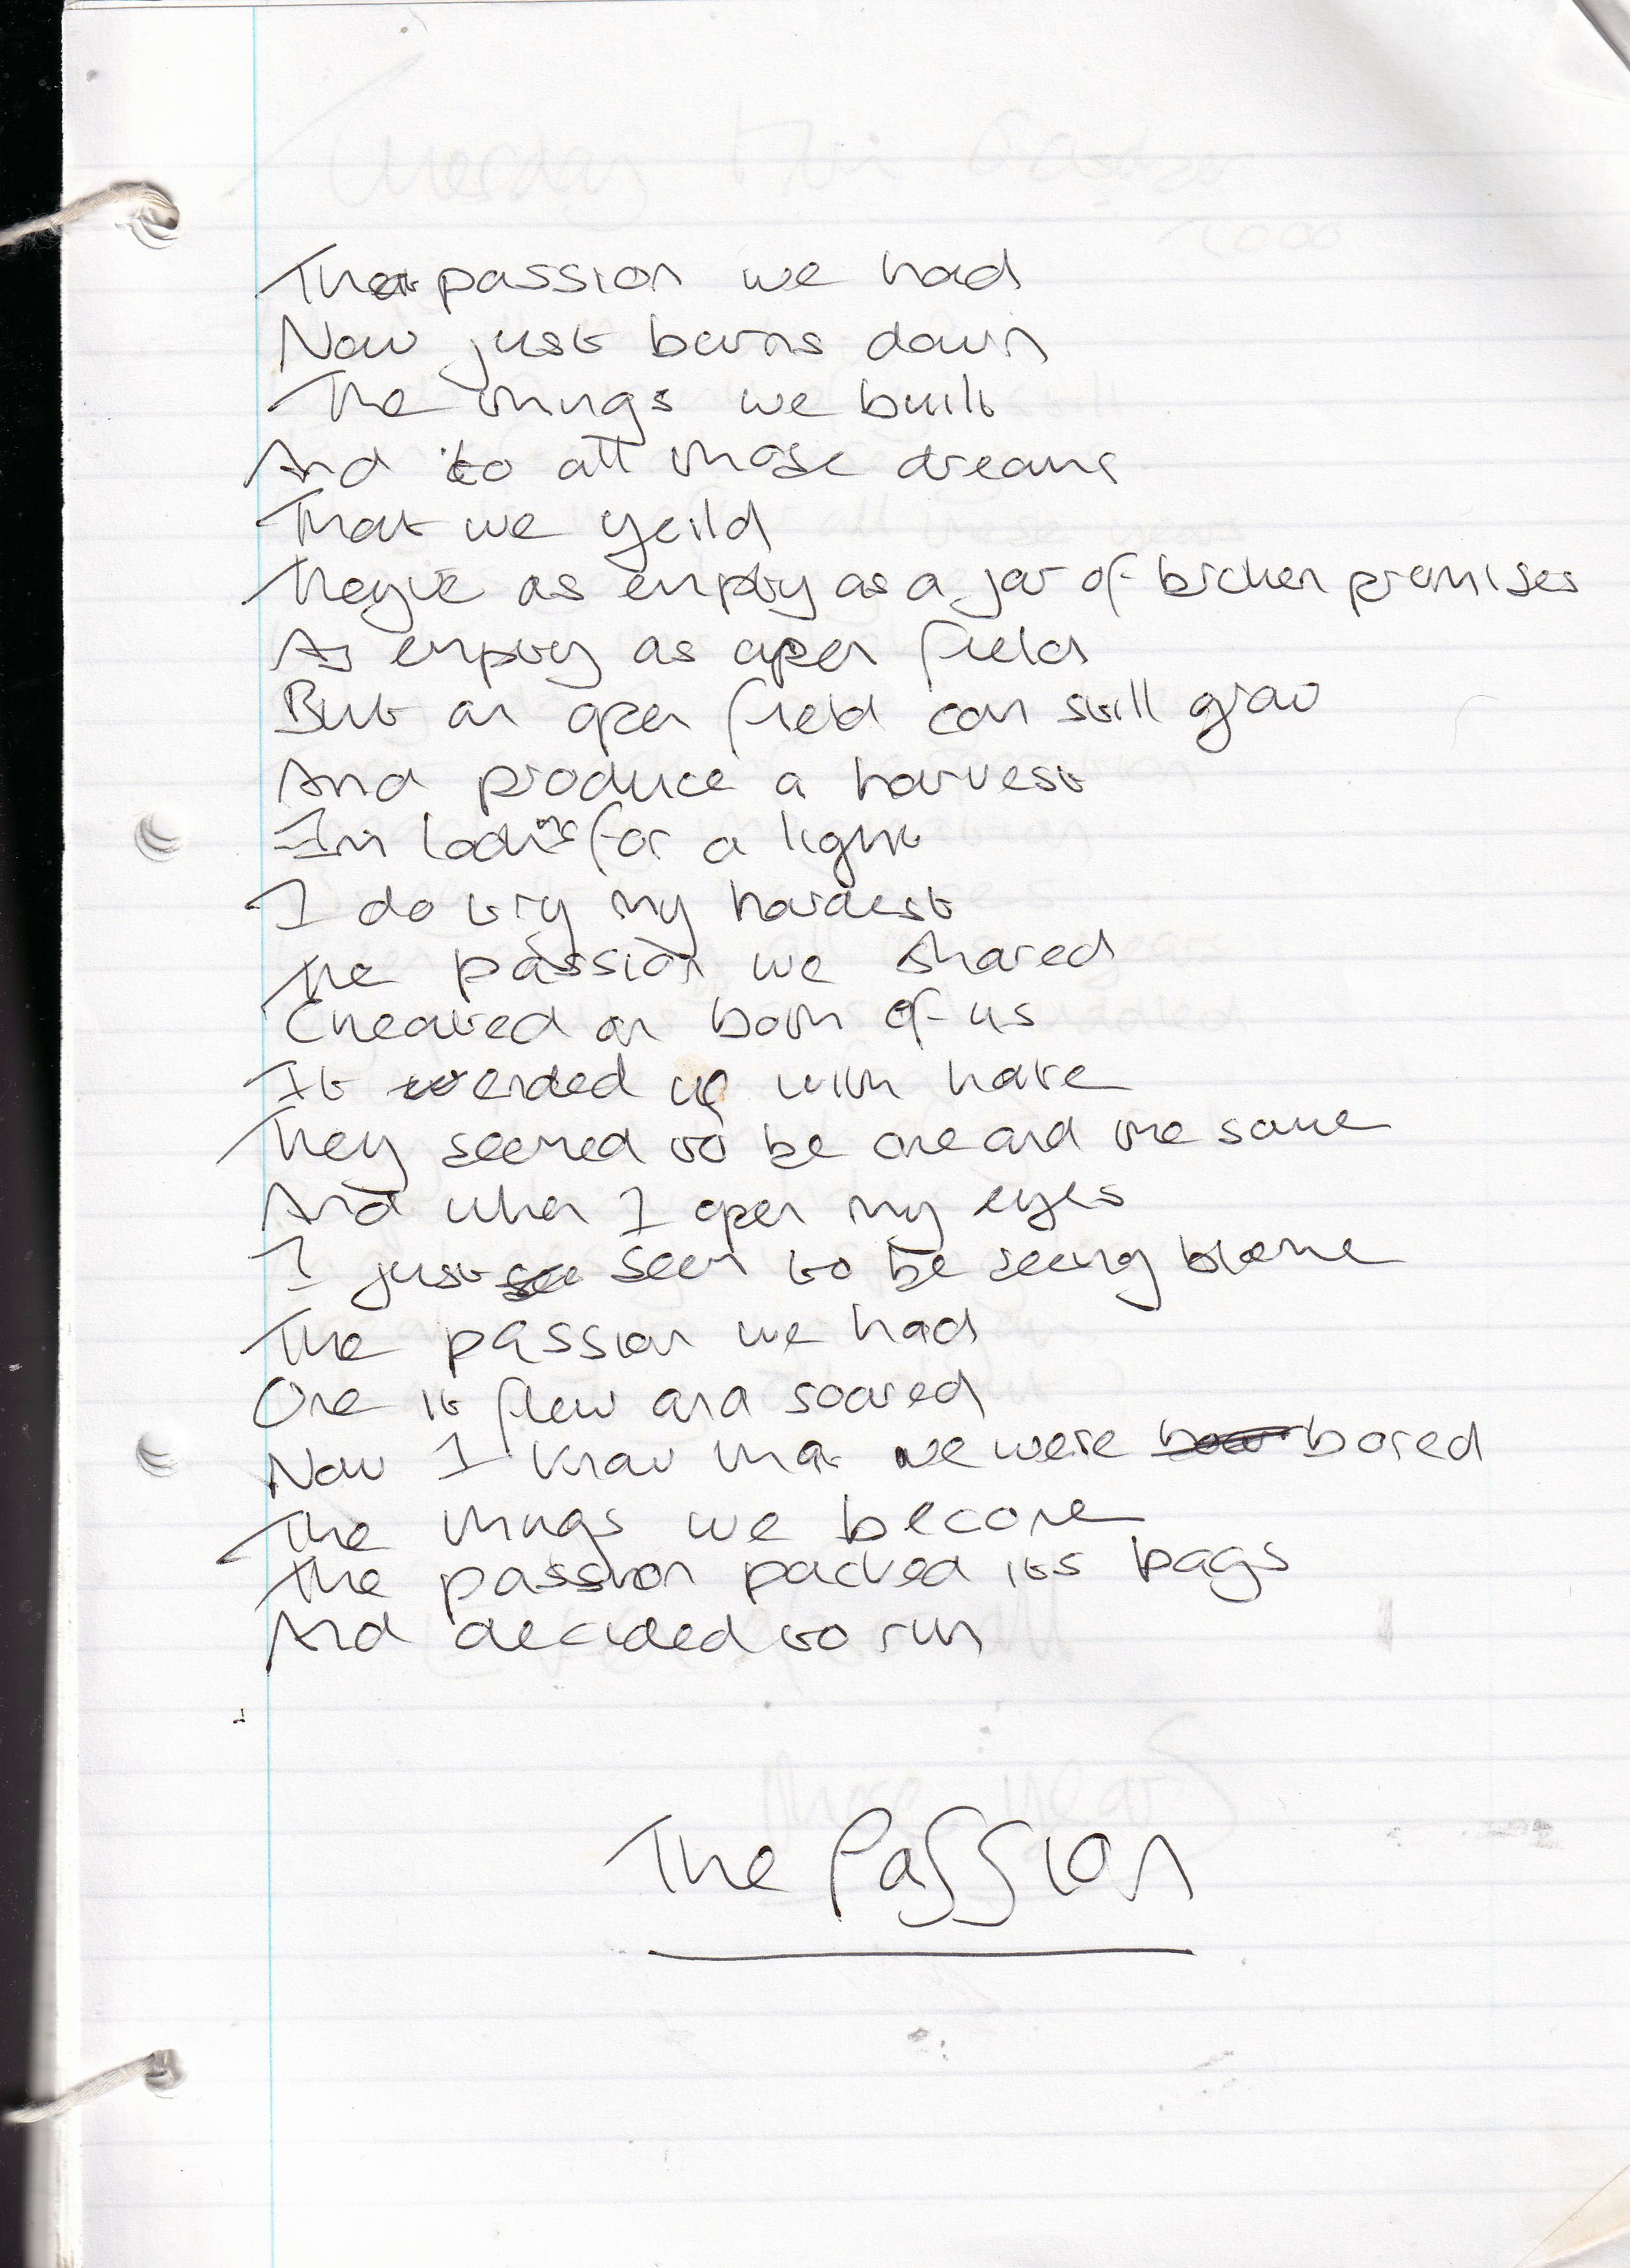 That passion we had
Now just burns down
The things we built
And to all those dreams
That we yeild
They're as empty as a jar of broken promises
As empty as open field
But an open field can still grow
And produce a harvest
Im looking for a light
I do try my hardest
The passion we shared
Cheated on both of us
It ended up with hate
They seemed to be one and the same
And when I open my eyes
I just seem to be seeing blame
The passion we had
One it flew and soared
Now I know that we were bored
The things we become
The passion packed its bags
And decided to run
The Passion